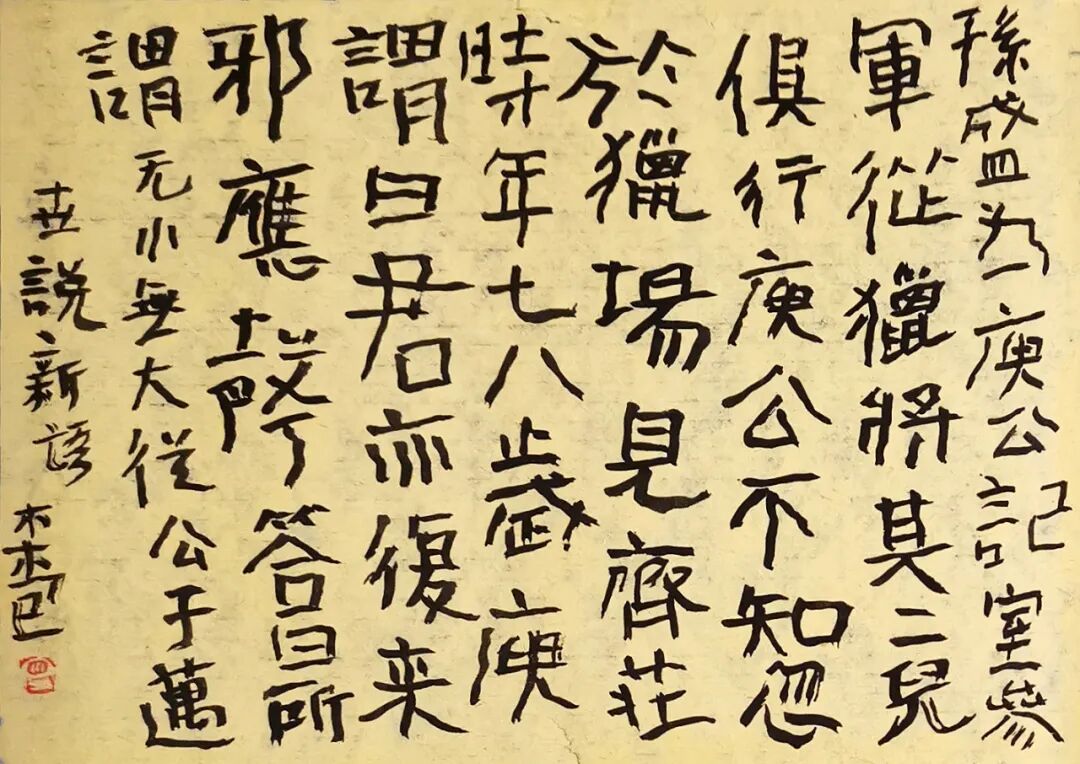 孫盛為庾公記室參
軍從獵將其二兒
俱行庾公不知忽
於獵場見齊莊
時年七八歲庾
謂曰君亦復来
邪應聲答曰所
謂无小無大從公于邁
世說新語